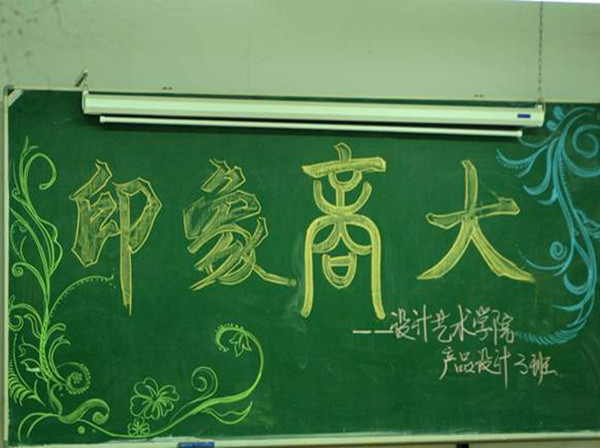 印象商大
——设计艺术学院
产品设计3班